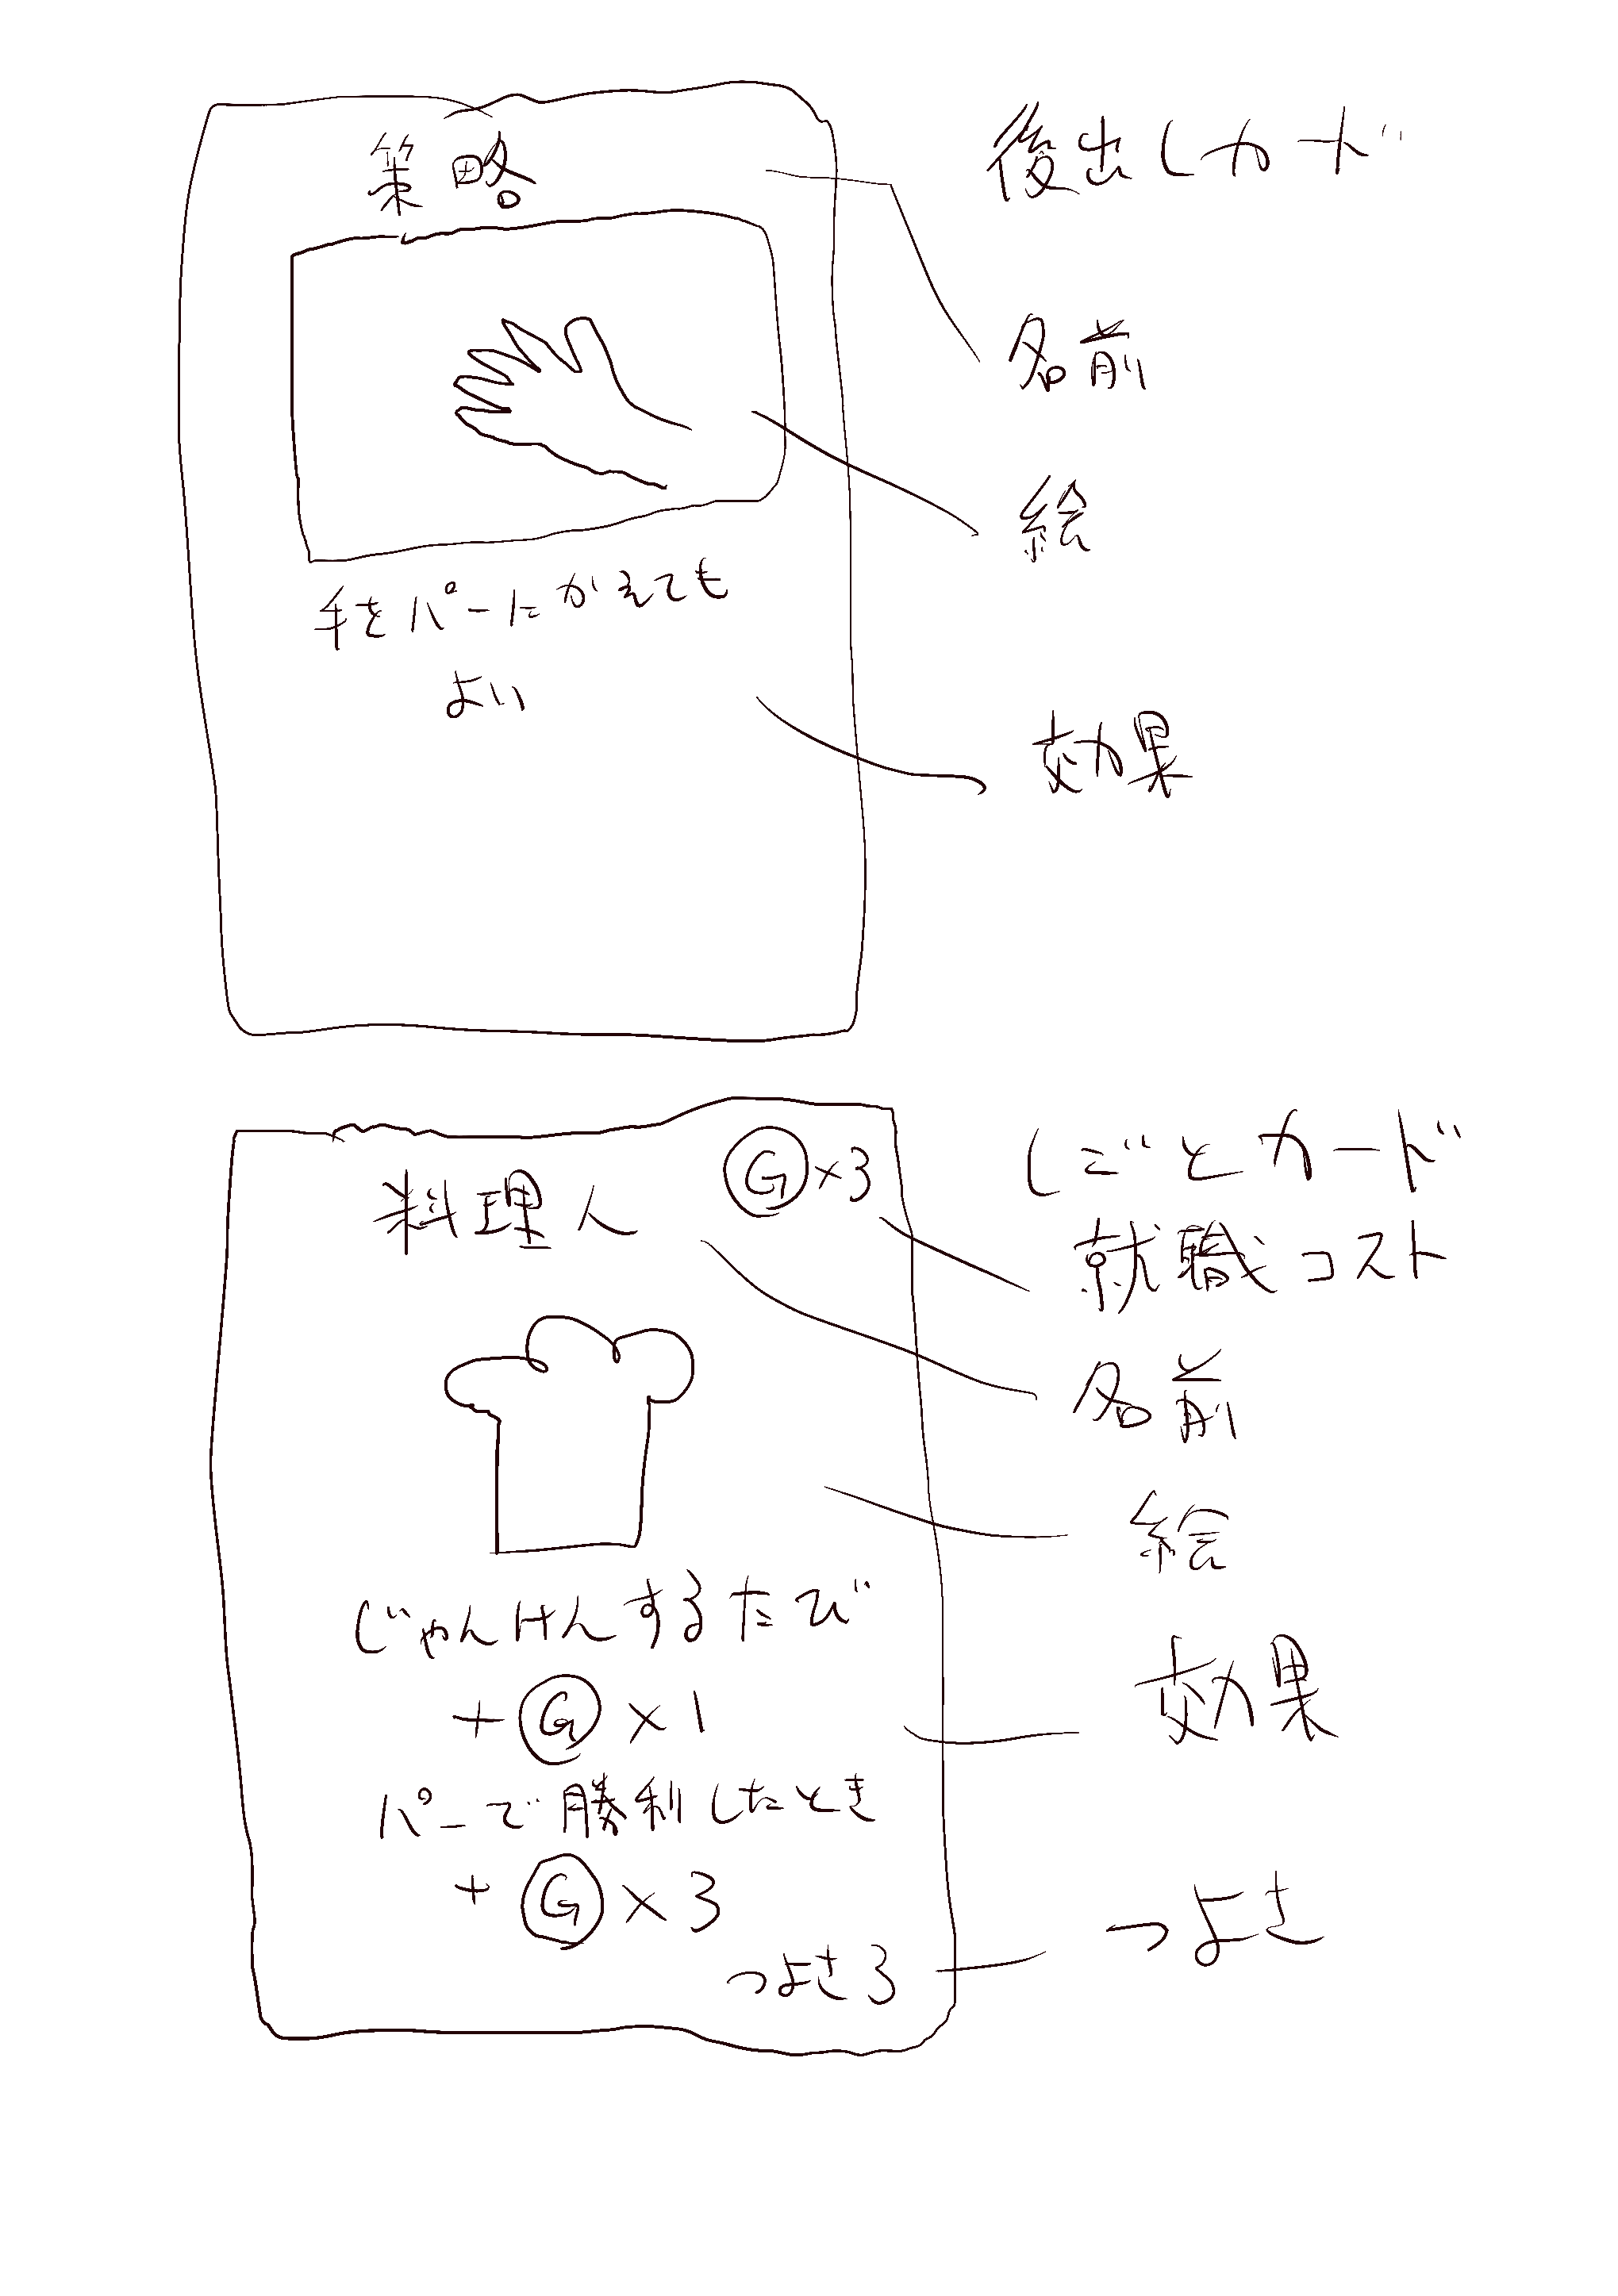 策略
手をパーにかえても
よい
後出しカード
名前
絵
効果
料理人
Ⓖ×3
じゃんけんするたび
+Ⓖ×1
パーで勝利したとき
+Ⓖ×3
つよさ3
しごとカード
就職コスト
名前
絵
効果
つよさ